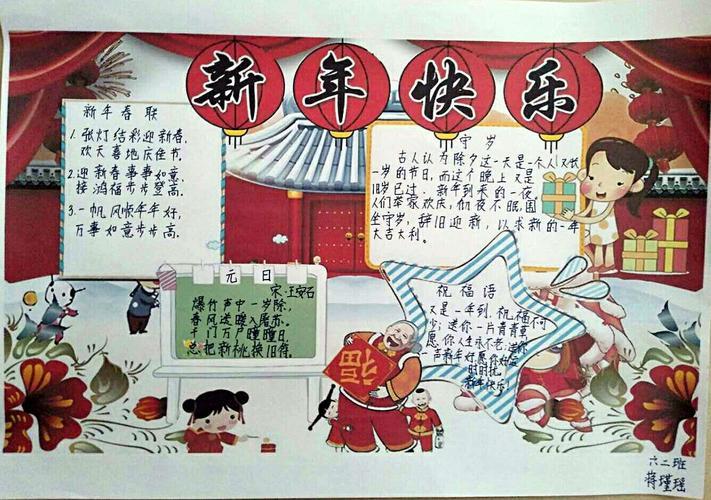 新年快乐
新年春联
1. 张灯结彩迎新春,
欢天喜地庆佳节.
2. 迎新春事事如意,
接鸿福步步登高.
3. 一帆风顺年年好,
万事如意步步高.
守岁
古人认为除夕这一天是一个人又长
一岁的节日,而这个晚上又是
旧岁已过、新年到来的一夜,
人们举家欢庆,彻夜不眠,围
坐守岁,辞旧迎新,以求新的一年
大吉大利。
元日
宋·王安石
爆竹声中一岁除,
春风送暖入屠苏.
千门万户曈曈日,
总把新桃换旧符.
祝福语
又是一年到,祝福不可
少;送你一片青青草
愿你人生永不老;送你
一声新年好愿你好运
时时扰
新年快乐!
福
六二班
蒋瑾瑶